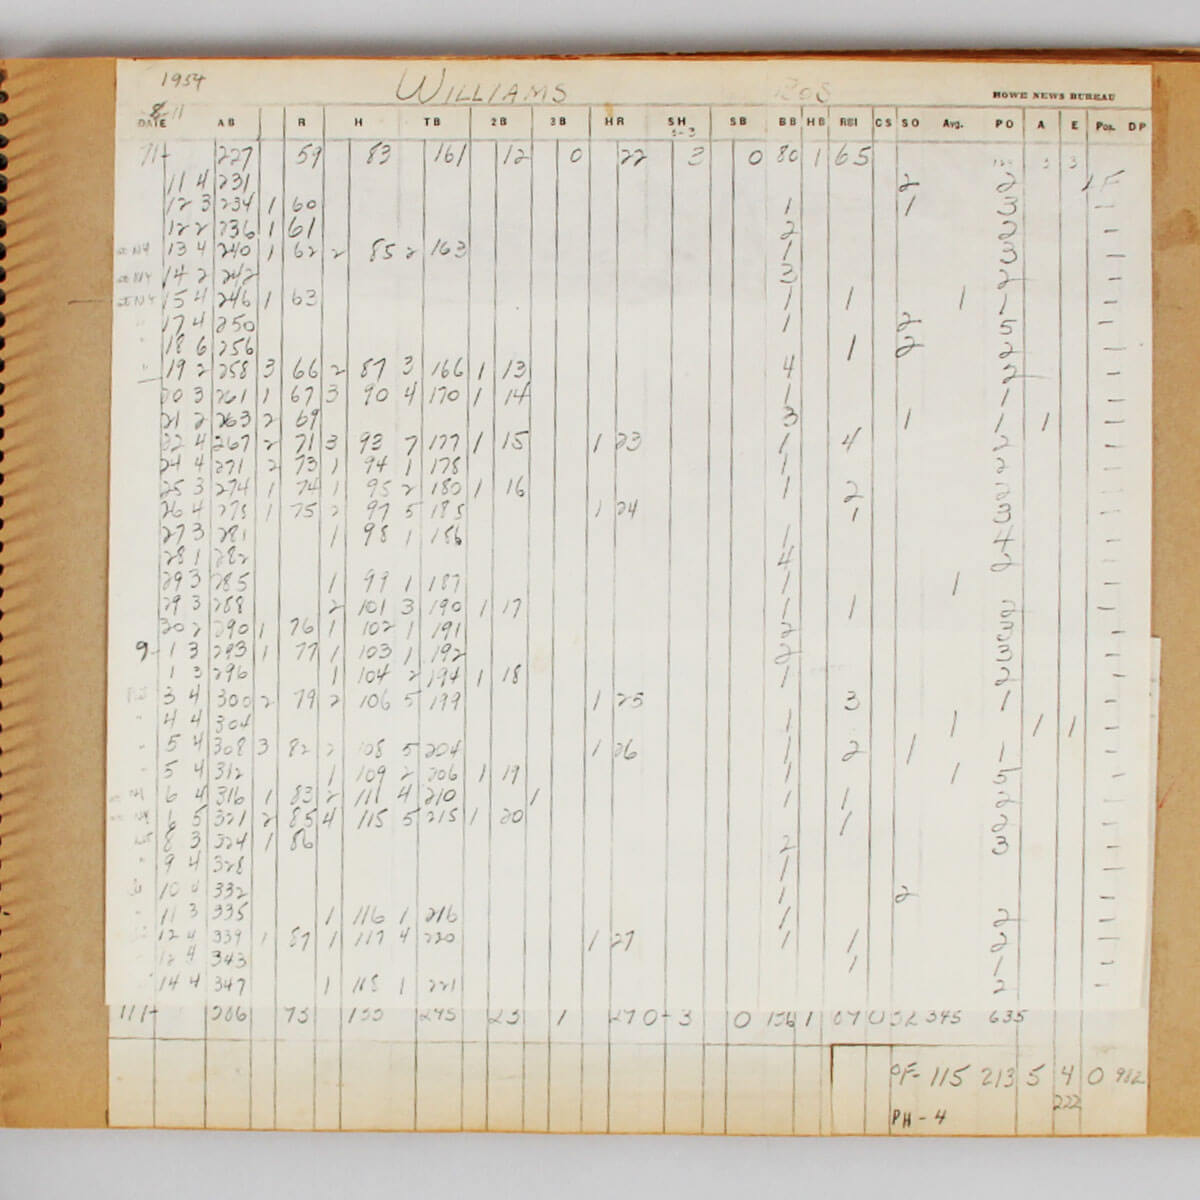 1954 WILLIAMS BOS HOWE NEWS BUREAU
8-11
DATE AB R H TB 2B 3B HR SH SB BB HB RBI CS SO Avg. PO A E Pos. DP
S-3
71- 227 59 83 161 12 0 22 3 0 80 1 65 3 3
11 4 231 2 2 LF
12 3 234 1 60 1 1 3 -
12 2 236 1 61 2 2 -
at NY 13 4 240 1 62 2 85 2 163 1 3 -
at NY 14 2 242 3 2 -
at NY 15 4 246 1 63 1 1 1 1 -
" 17 4 250 1 2 5 -
" 18 6 256 1 2 2 -
" 19 2 258 3 66 2 87 3 166 1 13 4 2 -
20 3 261 1 67 3 90 4 170 1 14 1 1 -
21 2 263 2 69 3 1 1 1 -
22 4 267 2 71 3 93 7 177 1 15 1 23 1 4 2 -
24 4 271 2 73 1 94 1 178 1 2 -
25 3 274 1 74 1 95 2 180 1 16 1 2 2 -
26 4 278 1 75 2 97 5 185 1 24 1 3 -
27 3 281 1 98 1 186 1 4 -
28 1 282 4 2 -
29 3 285 1 99 1 187 1 1 -
29 3 288 2 101 3 190 1 17 1 1 2 -
30 2 290 1 76 1 102 1 191 2 3 -
9- 1 3 293 1 77 1 103 1 192 2 3 -
1 3 296 1 104 2 194 1 18 1 2 -
3 4 300 2 79 2 106 5 199 1 25 3 1 -
" 4 4 304 1 1 1 1 -
" 5 4 308 3 82 2 108 5 204 1 26 1 2 1 1 -
" 5 4 312 1 109 2 206 1 19 1 1 5 -
6 4 316 1 83 2 111 4 210 1 1 1 2 -
6 5 321 2 85 4 115 5 215 1 20 1 2 -
8 3 324 1 86 2 3 -
" 9 4 328 1 -
10 4 332 1 2 -
" 11 3 335 1 116 1 216 1 2 -
12 4 339 1 87 1 117 4 220 1 27 1 1 2 -
12 4 343 1 1 -
14 4 347 1 118 1 221 2 -
117- 386 93 133 245 23 1 29 0-3 0 136 1 89 0 32 345 635
OF- 115 213 5 4 0 982
222
PH - 4